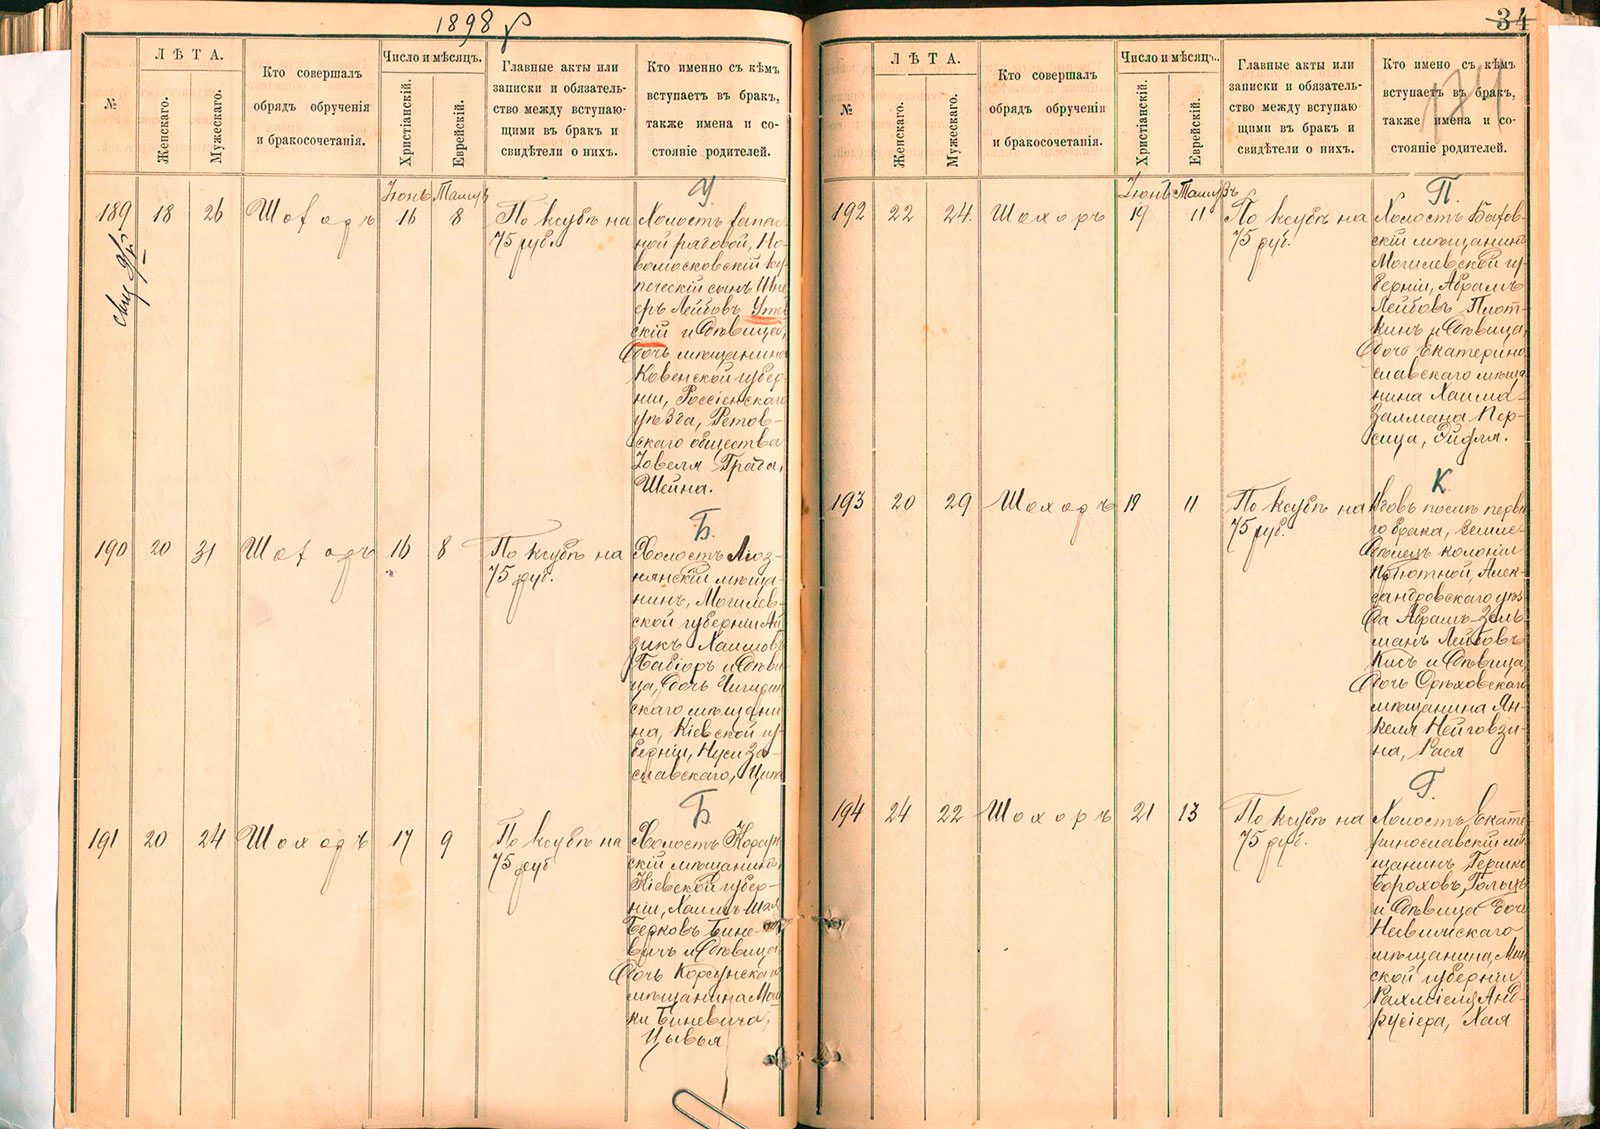 1898 г
34
№
ЛѢТА.
Женскаго.
Мужескаго.
Кто совершалъ
обрядъ обрученія
и бракосочетанія.
Число и мѣсяцъ.
Христіанскій.
Еврейскій.
Главные акты или
записки и обязатель-
ство между вступаю-
щими въ бракъ и
свидѣтели о нихъ.
Кто именно съ кѣмъ
вступаетъ въ бракъ,
также имена и со-
стояніе родителей.
189
18
26
Шохоръ
Іюнь
16
Тамузъ
8
По ксубѣ на
75 руб.
У.
Холостъ запас-
ной рядовой, Но-
вомосковскій ку-
печескій сынъ Шне-
еръ Лейбовъ Утев
скій и дѣвица,
дочь мѣщанина
Ковенской губер-
ніи, Россіенскаго
уѣзда, Ретов-
скаго общества
Іовеля Града,
Шейна.
190
20
31
Шохоръ
16
8
По ксубѣ на
75 руб.
Б.
Холостъ Лоз-
нянскій мѣща-
нинъ, Могилев-
ской губерніи Ай
зикъ Хаимовъ
Бабіоръ и дѣви
ца, дочь Чигирин
скаго мѣщани
на, Кіевской гу-
берніи, Нуси За-
славскаго,
191
20
24
Шохоръ
17
9
По ксубѣ на
75 руб
Б
Холостъ Корсун
скій мѣщанинъ,
Кіевской губер-
ніи, Хаимъ-Шая
Берковъ Бине-
вичъ и дѣвица
дочь Корсунскаго
мѣщанина
Биневича,
Цывья
№
ЛѢТА.
Женскаго.
Мужескаго.
Кто совершалъ
обрядъ обрученія
и бракосочетанія.
Число и мѣсяцъ.
Христіанскій.
Еврейскій.
Главные акты или
записки и обязатель-
ство между вступаю
щими въ бракъ и
свидѣтели о нихъ.
Кто имено съ кѣмъ
вступаетъ въ бракъ,
также имена и со-
стояніе родителей.
192
22
24.
Шохоръ
Іюнь
19
Тамузъ
11
По ксубѣ на
75 руб.
П.
Холостъ Быхов-
скій мѣщанинъ
Могилевской гу-
берніи, Абрамъ
Лейбовъ Плот-
кинъ и дѣвица,
дочь Екатерино
славскаго мѣща
нина Хаима-
Залмана Пер-
сица, Эйдля.
193
20
29
Шохоръ
19
11
По ксубѣ на
75 руб.
К
Вдовъ послѣ перва
го брака, земле-
дѣлецъ колоніи
Пріютной, Алек-
сандровскаго уѣз-
да Абрамъ-Зель-
манъ Лейбовъ
Кисъ и дѣвица,
дочь Орѣховскаго
мѣщанина Ян-
келя Нейговзи-
на, Рася
194
24
22
Шохоръ
21
13
По ксубѣ на
75 руб.
Г.
Холостъ Екате
ринославскій мѣ
щанинъ Гершко
Бороховъ Гольцъ
и дѣвица дочь
Несвижскаго
мѣщанина Мин
ской губерніи
Рахміеля Анд-
русіера, Хая